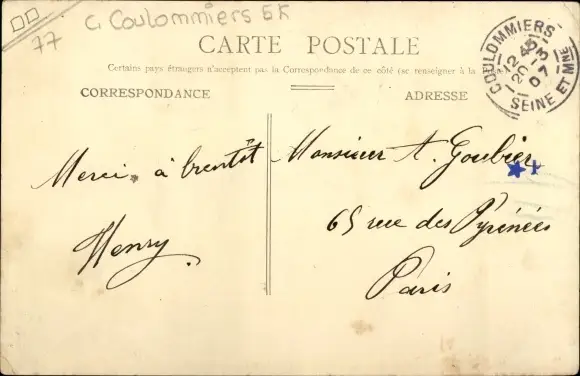 77
C Coulommiers 5K
CARTE POSTALE
Certains pays étrangers n'acceptent pas la Correspondance de ce côté (se renseigner à la
CORRESPONDANCE
ADRESSE
COULOMMIERS
12 45
20 - 3
07
SEINE ET MNE
Merci, à bientôt
Henry.
Monsieur A. Goubier
65 rue des Pyrénées
Paris